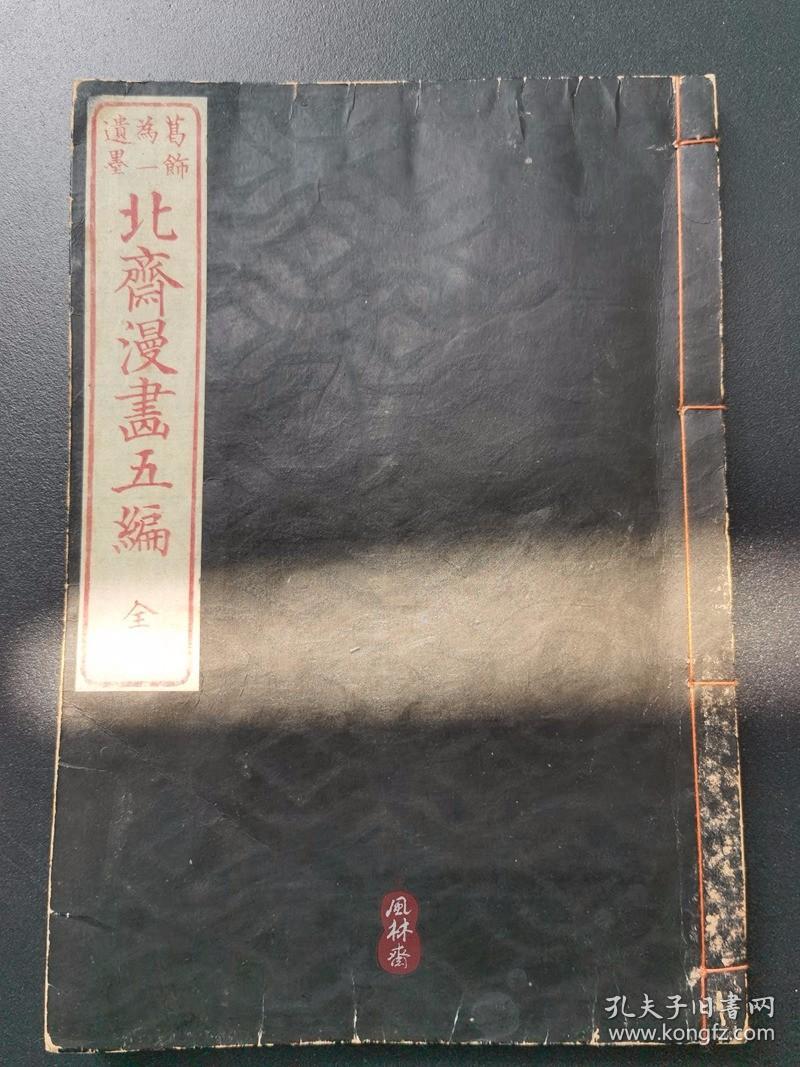 葛飾
為一
遺墨
北齋漫畫五編
全
風林齋
孔夫子旧書网
www.kongfz.com